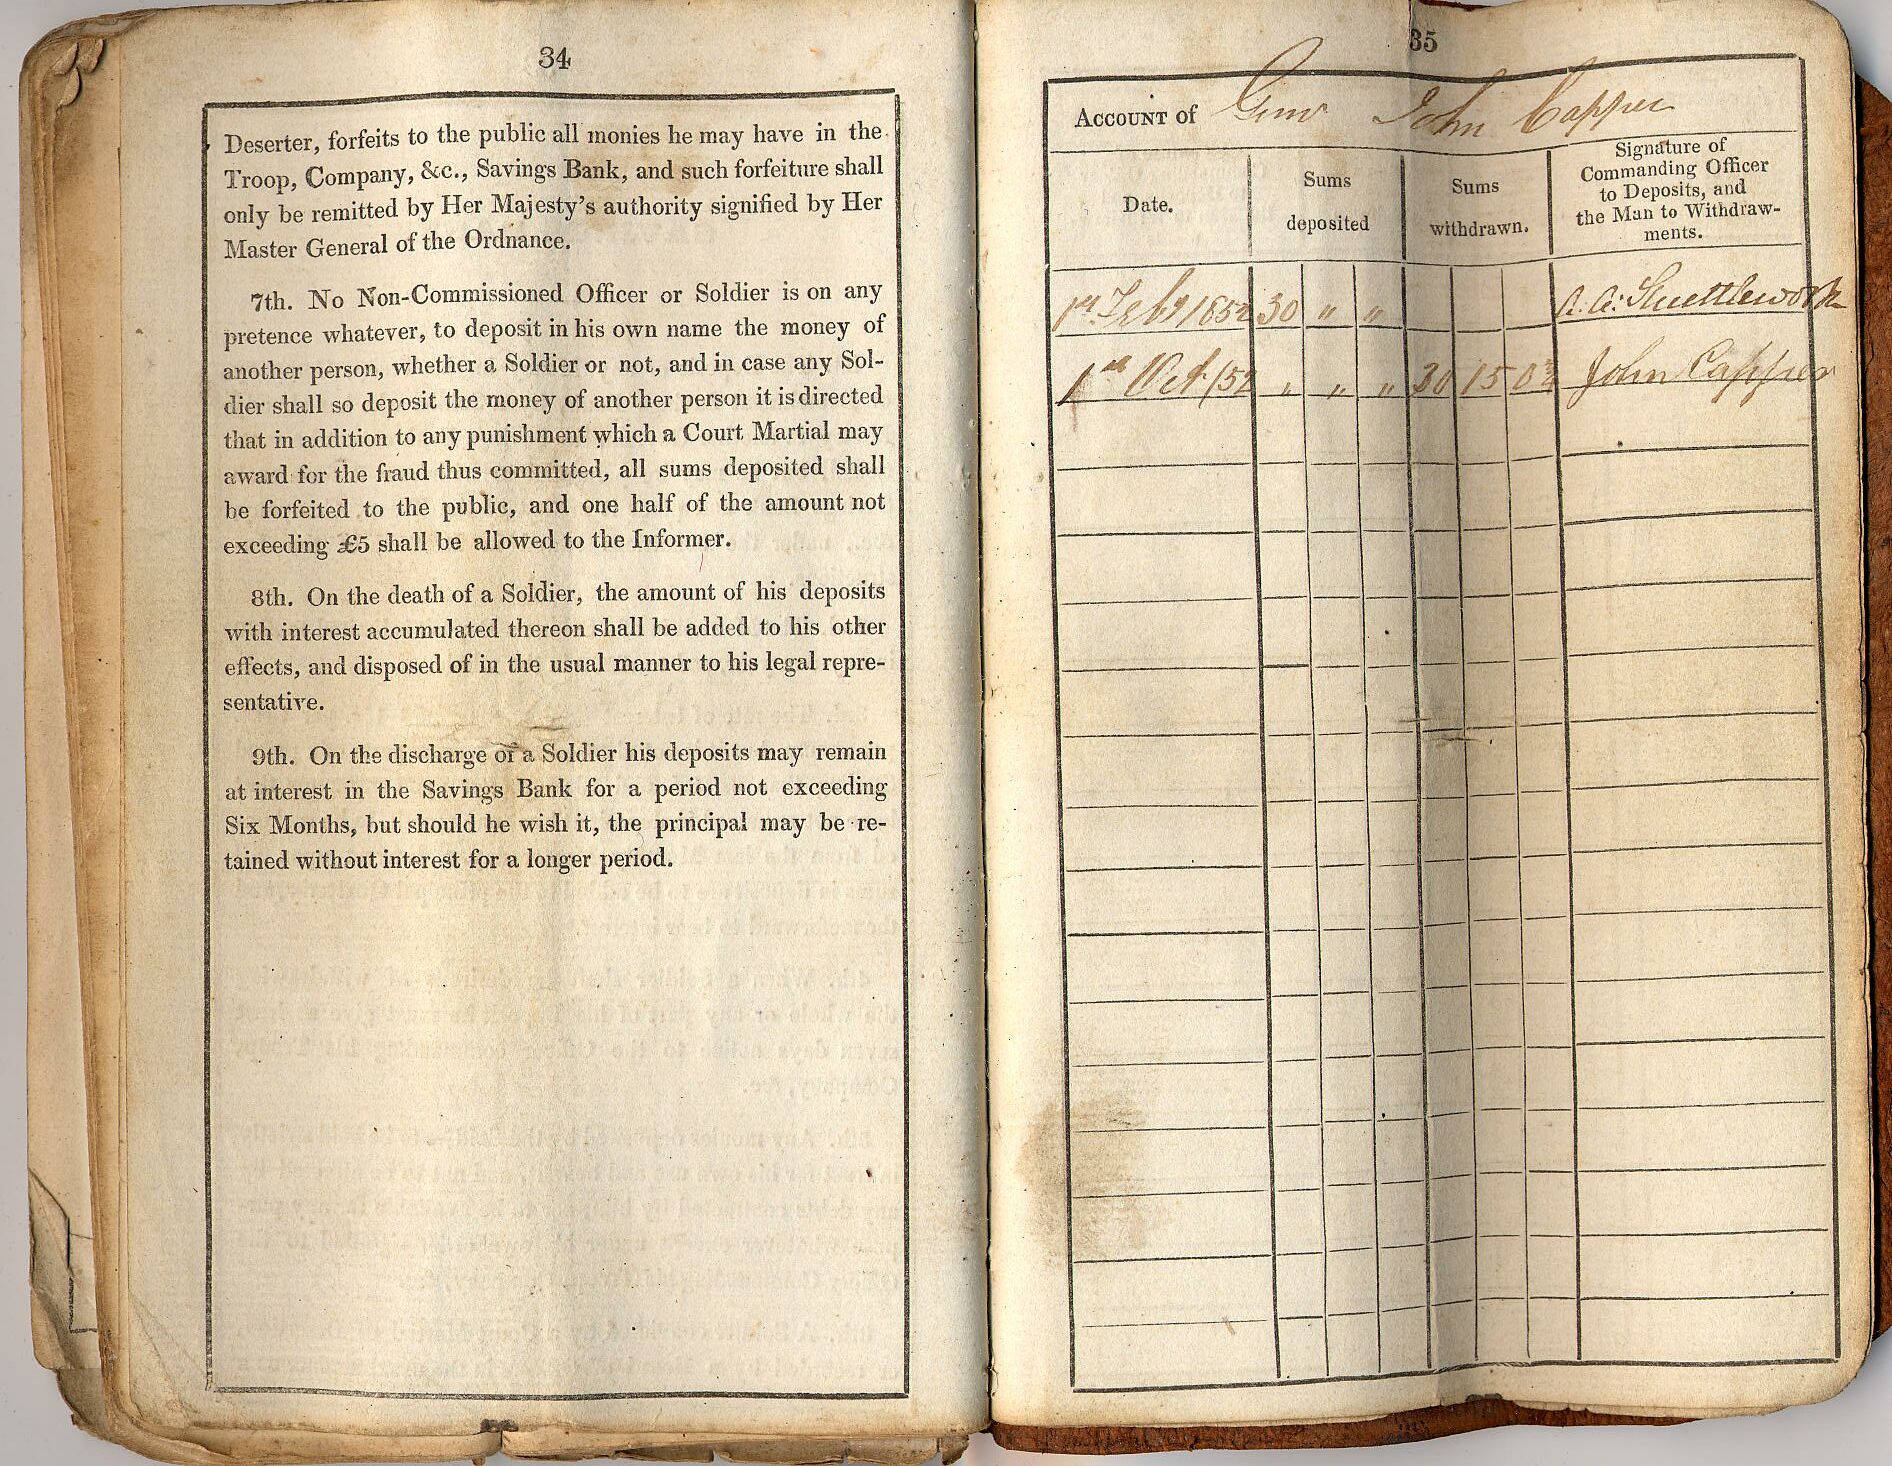 34
Deserter, forfeits to the public all monies he may have in the
Troop, Company, &c., Savings Bank, and such forfeiture shall
only be remitted by Her Majesty's authority signified by Her
Master General of the Ordnance.
7th. No Non-Commissioned Officer or Soldier is on any
pretence whatever, to deposit in his own name the money of
another person, whether a Soldier or not, and in case any Sol-
dier shall so deposit the money of another person it is directed
that in addition to any punishment which a Court Martial may
award for the fraud thus committed, all sums deposited shall
be forfeited to the public, and one half of the amount not
exceeding £5 shall be allowed to the Informer.
8th. On the death of a Soldier, the amount of his deposits
with interest accumulated thereon shall be added to his other
effects, and disposed of in the usual manner to his legal repre-
sentative.
9th. On the discharge of a Soldier his deposits may remain
at interest in the Savings Bank for a period not exceeding
Six Months, but should he wish it, the principal may be re-
tained without interest for a longer period.
35
Account of Gunr John Capper
Date.
Sums
deposited
Sums
withdrawn.
Signature of
Commanding Officer
to Deposits, and
the Man to Withdraw-
ments.
1st Feby 1852 30 " " Shuttlework
1st Oct /52 " " " 30 15 0¾ John Capper